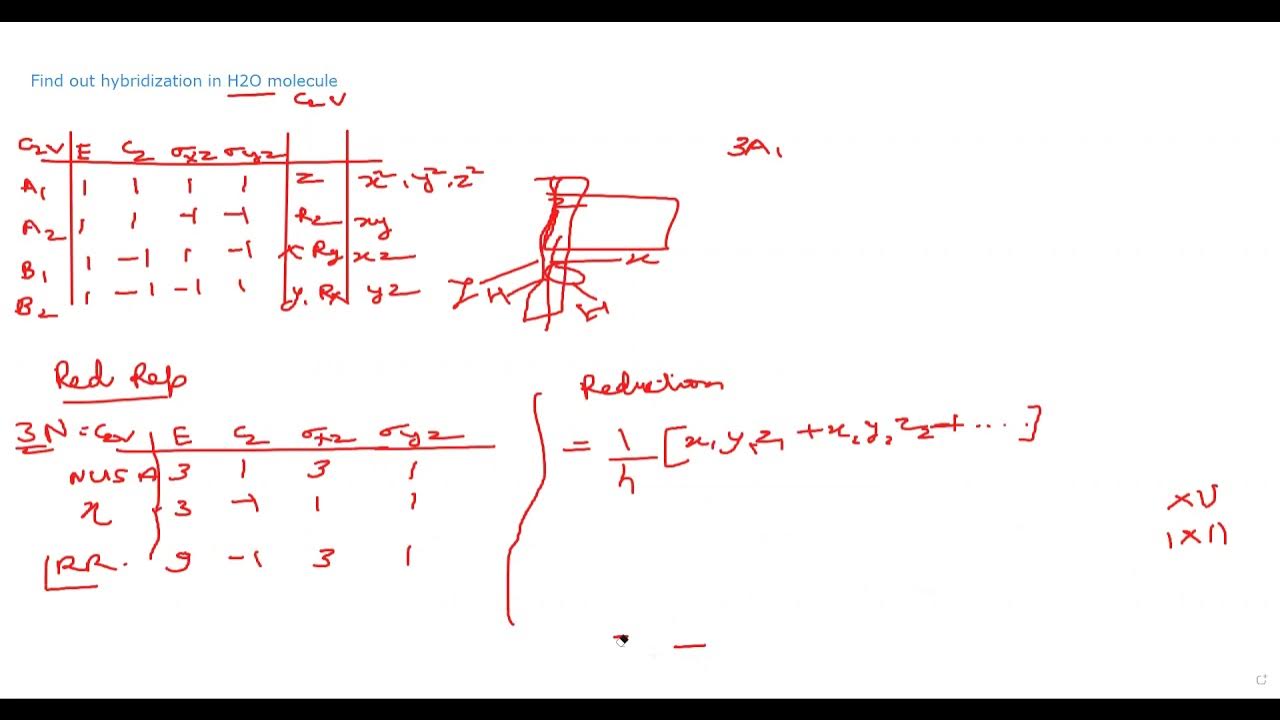 Find out hybridization in H2O molecule
C₂V
C₂V E C₂ σxz σyz
A₁ 1 1 1 1 z x², y², z²
A₂ 1 1 -1 -1 Rz xy
B₁ 1 -1 1 -1 x Ry xz
B₂ 1 -1 -1 1 y, Rx yz
3A₁
x
H
Red Rep
3N = C₂V E C₂ σxz σyz
NUSA 3 1 3 1
x 3 -1 1 1
RR. 9 -1 3 1
Reduction
= 1/h [x₁y₁z₁ + x₂y₂z₂ + ....]